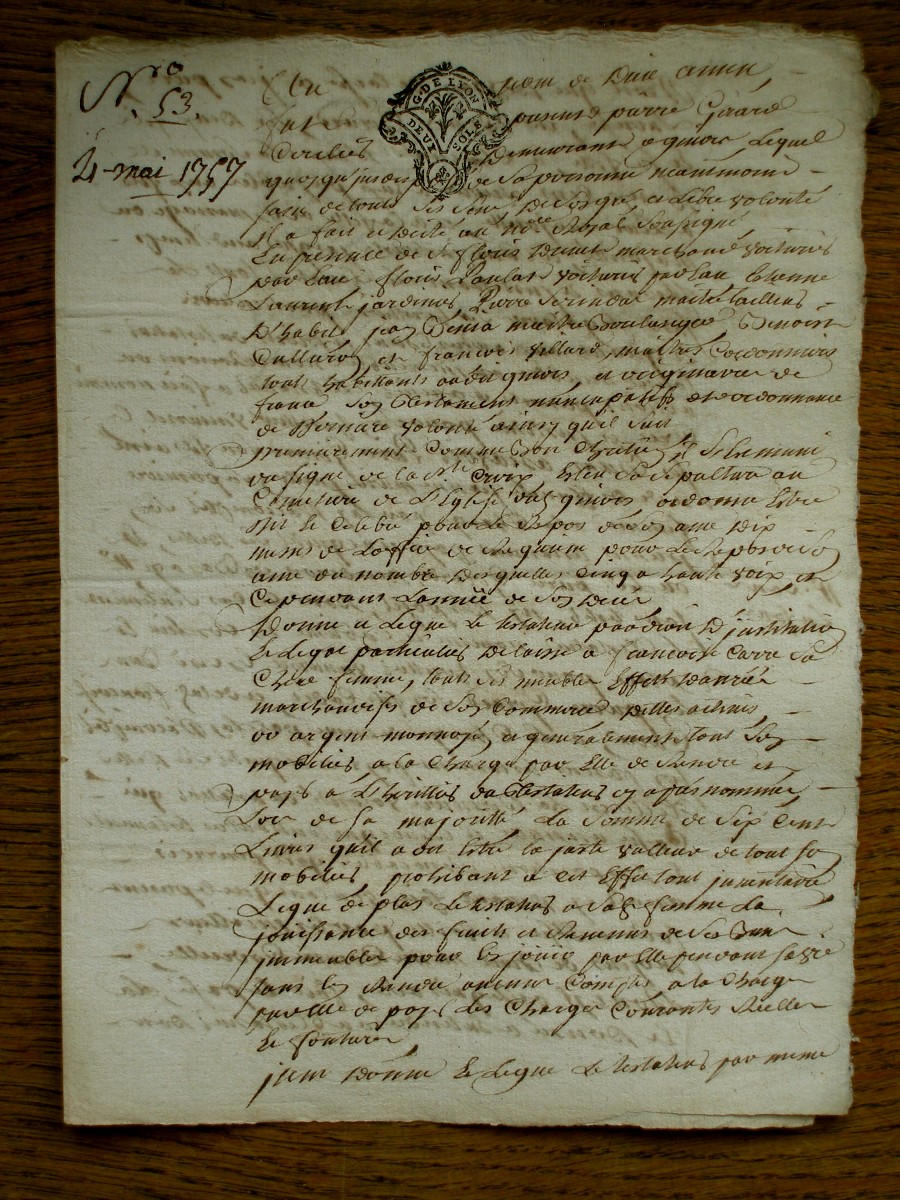 N.o 53.
4 mai 1757
G. DE LYON
DEUX SOLS
Au nom de Dieu amen,
fut present pierre Girard
demeurant a givors Lequel
de sa personne neantmoins
sain de touts ses sens, De son gré, et Libre volonté
Il a fait et Dicté au no.re Royal Soussigné
En presence de Sr floris marchand voiturier
par Eau, floris voiturier par Eau Etienne
Laurent jardinier, Pierre maitre tailleur
D'habit, jean maitre Boulanger, Benoist
et francois villard, maitres Cordonniers
touts habittants audit givors, et originaires de
france son Testament nuncupatif et ordonnance
de derniere volonté ainsy qu'il suit
premierement Comme bon Chretien Il s'est muni
du signe de la Ste Croix, Eslu sa sepulture au
Cimetiere de L'Eglise dud givors ordonne Estre
dit et Celebré pour le Repos de son ame Dix
messes de L'office de Requiem pour le Repos de son
ame du nombre desquelles Cinq a haute voix et
Ce pendant L'année de son Deces
Donne et Legue Le testateur par droit D'institution
Et Legat particulier De laisse a francoise Carre sa
Chere femme, touts ses meubles Effets Danrées
marchandises de son Commerce Dettes actives
or argent monnoyé et generalement tout son
mobilier a la Charge par Elle de Rendre et
payer a L'heritier du testateur cy apres nommé
Lors de sa majorité La Somme de Six Cent
Livres qu'il a dit Estre la juste valleur de tout son
mobilier, prohibant a cet Effet tout inventaire
Legue de plus Le testateur a sad femme La
jouissance des fruits et Revenus de ses biens
immeubles pour les jouir par Elle pendant sa vie
sans En Rendre aucun Compte a la Charge
par Elle de payer Les Charges Courantes Reelles
Et foncieres
item Donne Et Legue Le testateur par meme